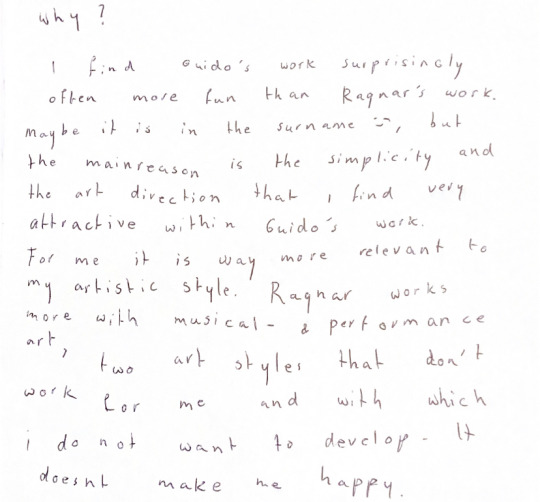 why ?
I find Guido's work surprisingly
often more fun than Ragnar's work.
Maybe it is in the surname :), but
the mainreason is the simplicity and
the art direction that i find very
attractive within Guido's work.
For me it is way more relevant to
my artistic style. Ragnar works
more with musical- & performance
art, two art styles that don't
work for me and with which
i do not want to develop. It
doesnt make me happy.